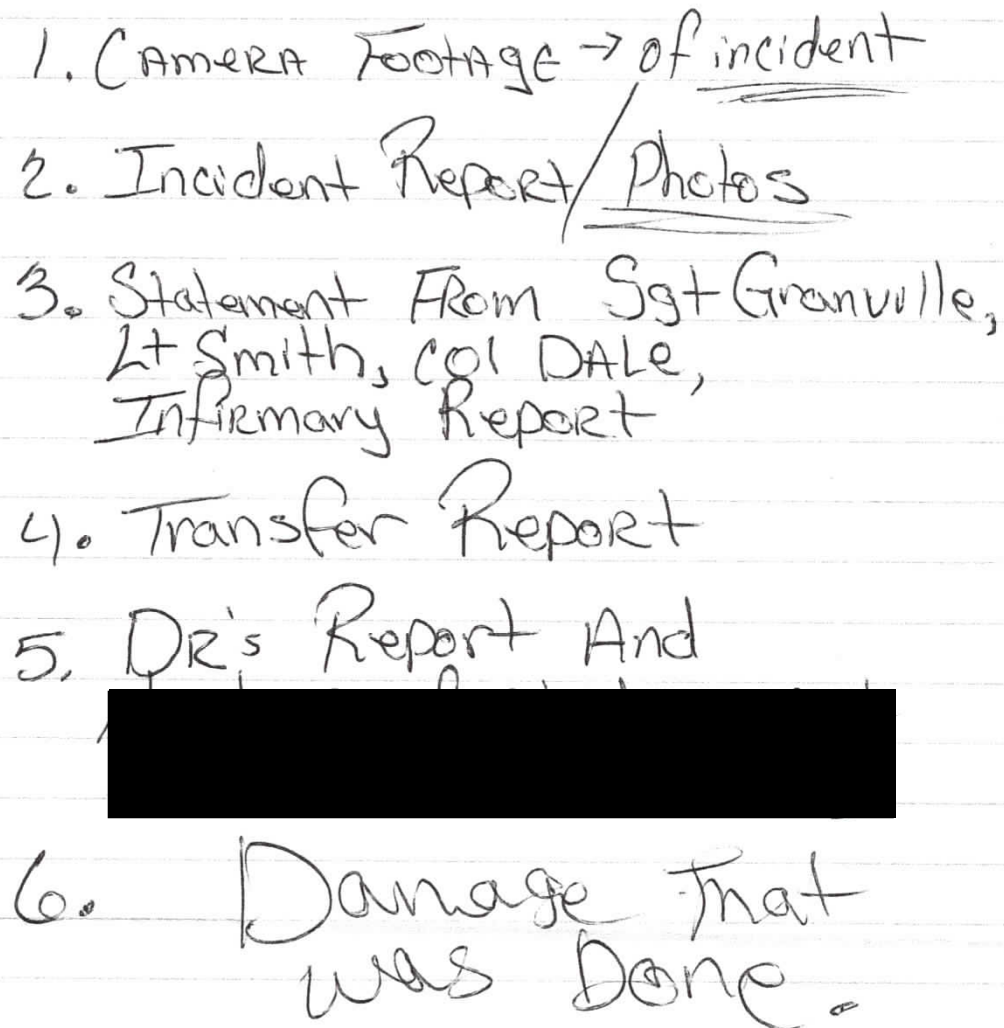 1. CAMERA FOOTAGE → of incident
2. Incident Report/Photos
3. Statement From Sgt Granville,
Lt Smith, Col DALe,
Infirmary Report
4. Transfer Report
5. DR's Report And
6. Damage That
was Done.